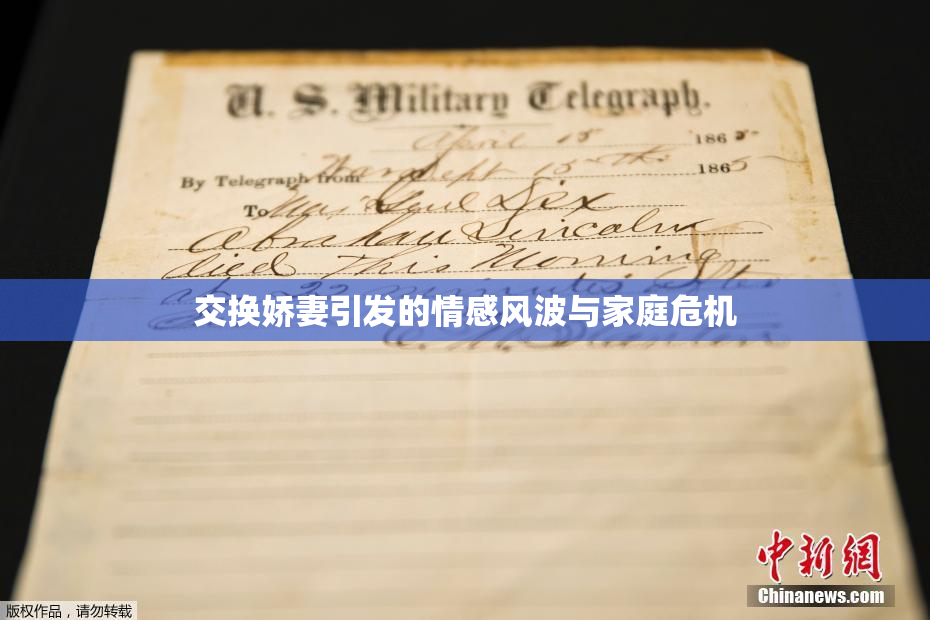 U. S. Military Telegraph.
April 15 1865
By Telegraph from War Dept 15th 1865
To Maj Genl Dix
Abraham Lincoln
died This Morning
at 22 minutes after
交换娇妻引发的情感风波与家庭危机
E. M. Stanton
中新网
Chinanews.com
版权作品，请勿转载